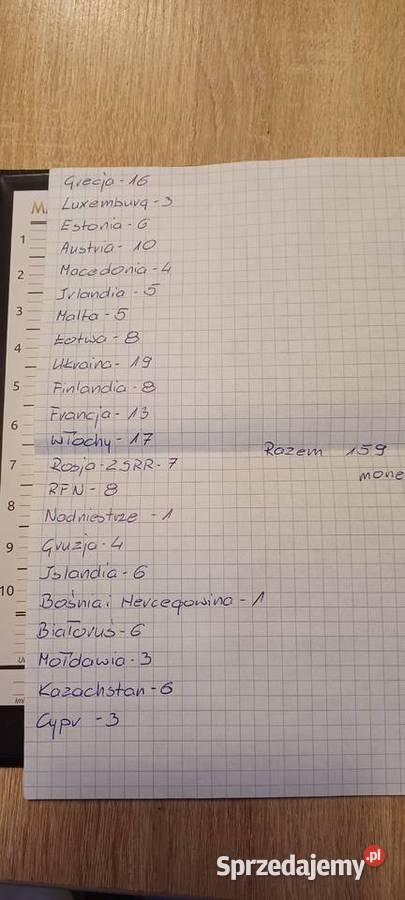 Grecja - 16
Luxemburg - 3
Estonia - 6
Austria - 10
Macedonia - 4
Irlandia - 5
Malta - 5
Łotwa - 8
Ukraina - 19
Finlandia - 8
Francja - 13
Włochy - 17
Rosja - ZSRR - 7
RFN - 8
Nadniestrze - 1
Gruzja - 4
Islandia - 6
Bośnia i Hercegowina - 1
Białoruś - 6
Mołdawia - 3
Kazachstan - 6
Cypr - 3
Razem 159
mone
1
2
3
4
5
6
7
8
9
10
Sprzedajemy.pl